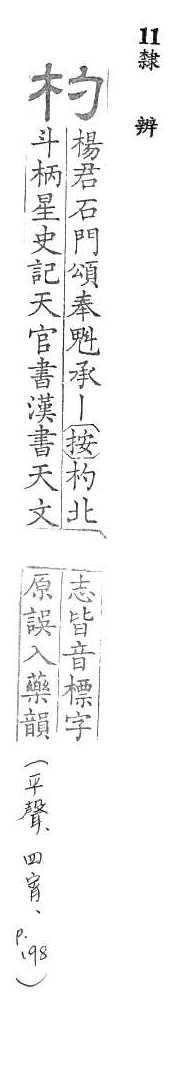 11 隸辨
杓
楊君石門頌奉魁承丨按杓北
斗柄星史記天官書漢書天文
志皆音標字
原誤入藥韻
(平聲、四宵、p.198)